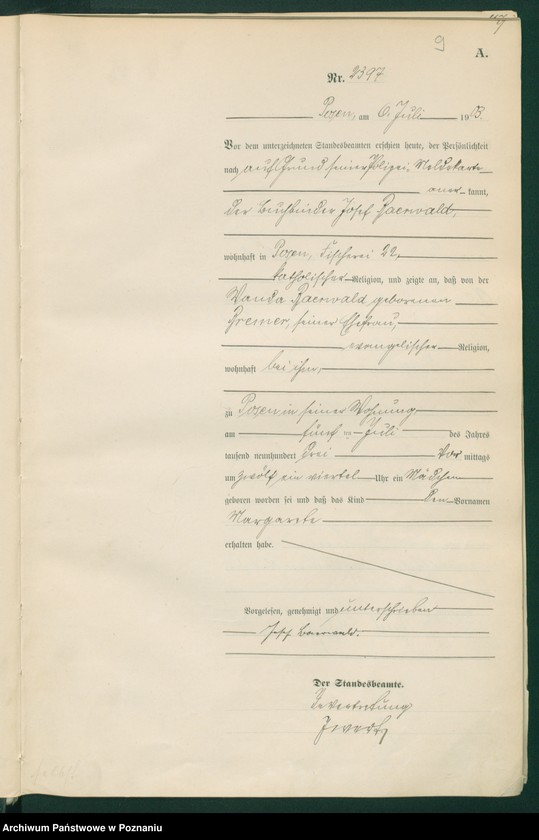 9
A.
Nr. 2397
Posen, am 6. Juli 1903.
Vor dem unterzeichneten Standesbeamten erschien heute, der Persönlichkeit
nach, auf Grund seiner Polizei-Meldekarte
aner- kannt,
der Buchbinder Josef Baerwald,
wohnhaft in Posen, Fischerei 22,
katholischer Religion, und zeigte an, daß von der
Wanda Baerwald, geborenen
Bremer, seiner Ehefrau,
evangelischer Religion,
wohnhaft bei ihm,
zu Posen in seiner Wohnung
am fünften Juli des Jahres
tausend neunhundert drei Vor mittags
um zwölf ein viertel Uhr ein Mädchen
geboren worden sei und daß das Kind den Vornamen
Margarete
erhalten habe.
Vorgelesen, genehmigt und unterschrieben
Josef Baerwald.
Der Standesbeamte.
In Vertretung
Archiwum Państwowe w Poznaniu